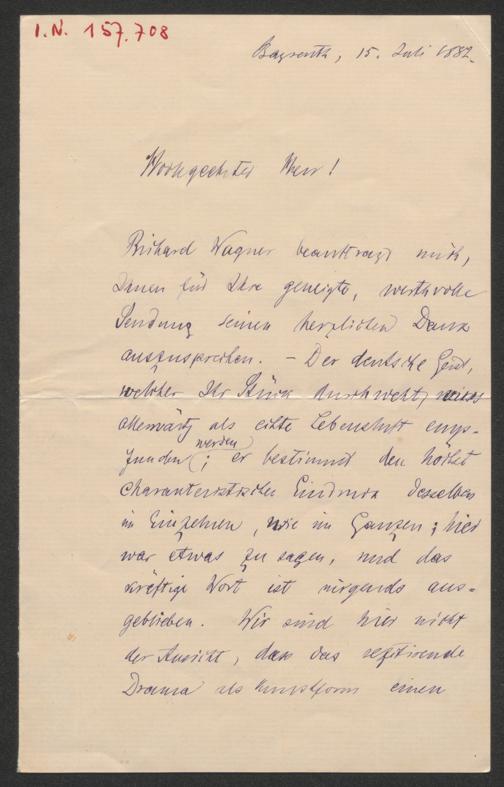 I.N. 157.708
Bayreuth, 15. Juli 1882.
Hochgeehrter Herr!
Richard Wagner beauftragt mich,
Ihnen für Ihre geneigte, werthvolle
Sendung seinen herzlichen Dank
auszusprechen. – Der deutsche Geist,
welcher Ihr Stück durchweht, muss
allerwärts als echte Lebensluft emp-
funden werden; er bestimmt den höchst
charakteristischen Eindruck desselben
im Einzelnen, wie im Ganzen; hier
war etwas zu sagen, und das
kräftige Wort ist nirgends aus-
geblieben. Wir sind hier nicht
der Ansicht, dass das recitirende
Drama als Kunstform einen